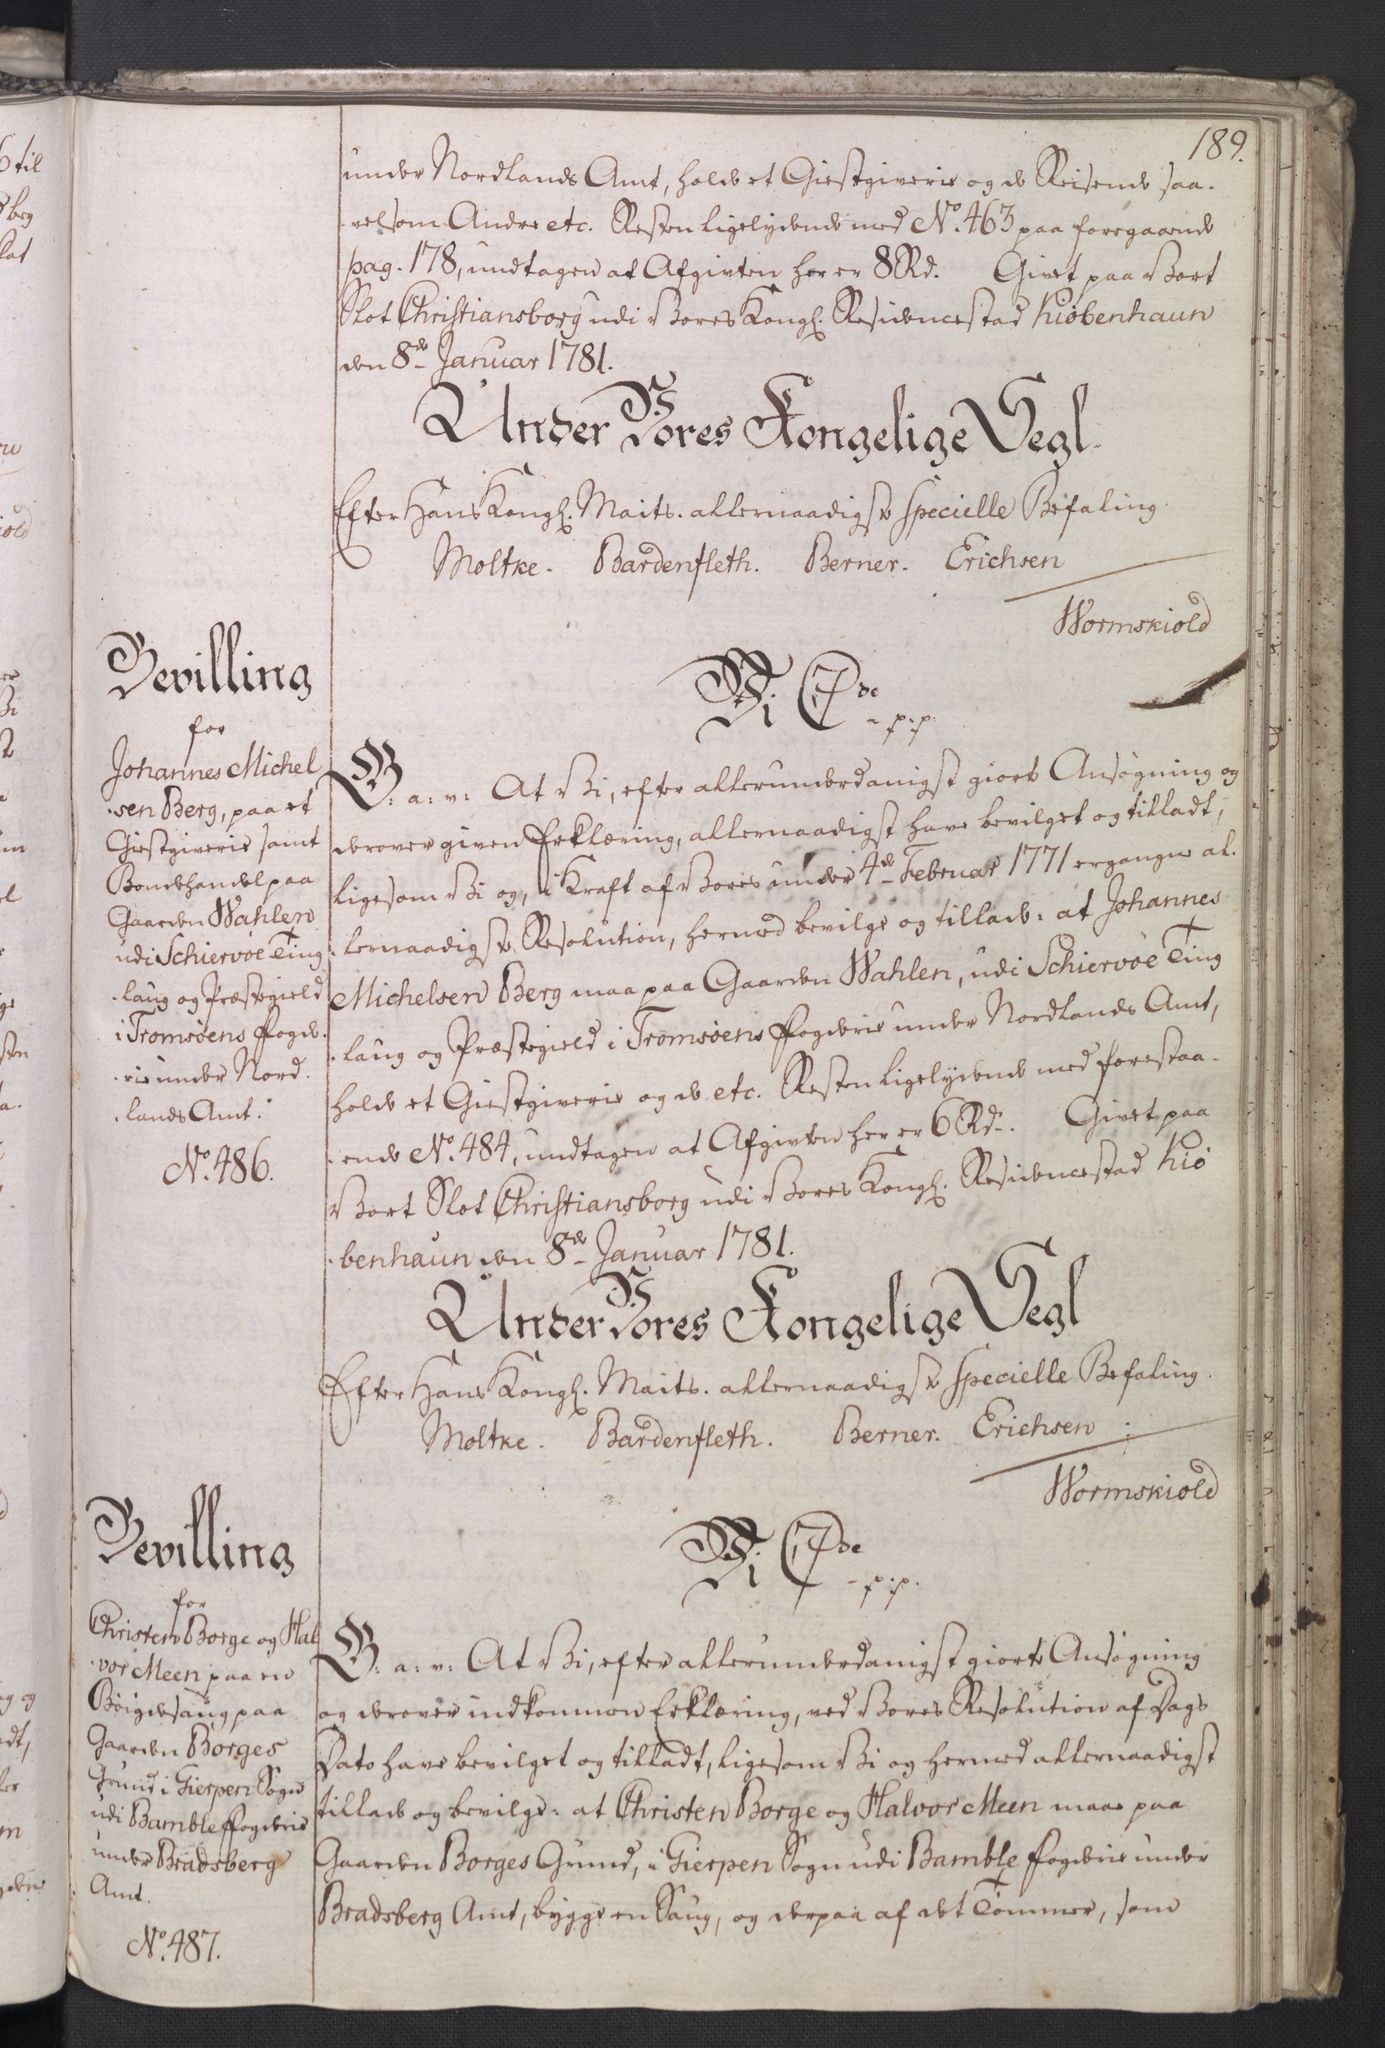 189.
under Nordlands Amt, holde et Giestgiverie og de Reisende saa-
-velsom Andre etc. Resten ligelydende med No. 463 paa foregaaende
pag. 178, undtagen at Afgivten her er 8 Rd. Givet paa Vort
Slot Christiansborg udi Vores Kongl. Residencestad Kiöbenhaun
den 8de Januar 1781.
Under Vores Kongelige Segl.
Efter Hans Kongl. Maits. allernaadigste specielle Befaling.
Moltke. Bardenfleth. Berner. Erichsen
Wormskiold
Bevilling
for
Johannes Michel
-sen Berg, paa et
Giestgiverie samt
Bondehandel paa
Gaarden Wahlen
udi Schiervöe Ting
-laug og Præstegield
i Tromsöens Fogde-
-rie under Nord-
-lands Amt.
No. 486.
Vi C 7de
- p:p:
G: a: v: At Vi, efter allerunderdanigst giorte Ansøgning og
derover given Erklæring, allernaadigst have bevilget og tilladt,
ligesom Vi og, i Kraft af Vores under 4de Februar 1771 ergangne al-
-lernaadigste Resolution, hermed bevilge og tillade: at Johannes
Michelsen Berg maa paa Gaarden Wahlen, udi Schiervöe Ting
-laug og Præstegield i Tromsöens Fogderie under Nordlands Amt,
holde et Giestgiverie og de etc. Resten ligelydende med forestaa-
-ende No. 484, undtagen at Afgivten her er 6 Rd. Givet paa
Vort Slot Christiansborg udi Vores Kongl. Residencestad Kiö
-benhaun den 8de Januar 1781.
Under Vores Kongelige Segl
Efter Hans Kongl. Maits. allernaadigste specielle Befaling.
Moltke. Bardenfleth. Berner. Erichsen
Wormskiold
Bevilling
for
Christen Borge og Hal
-vor Meen paa en
Böigdesaug paa
Gaarden Borges
Grund i Gierpen Sogn
udi Bamble Fogderie
under Bradsberg
Amt.
No. 487.
Vi C 7de
- p:p.
G: a: v: At Vi, efter allerunderdanigst giorte Ansøgning
og derover indkommen Erklæring, ved Vores Resolution af Dags
Dato have bevilget og tilladt, ligesom Vi og hermed allernaadigst
tillade og bevilge: at Christen Borge og Halvor Meen maae paa
Gaarden Borges Grund, i Gierpen Sogn udi Bamble Fogderie under
Bradsberg Amt, bygge en Saug, og derpaa af det Tömmer, som